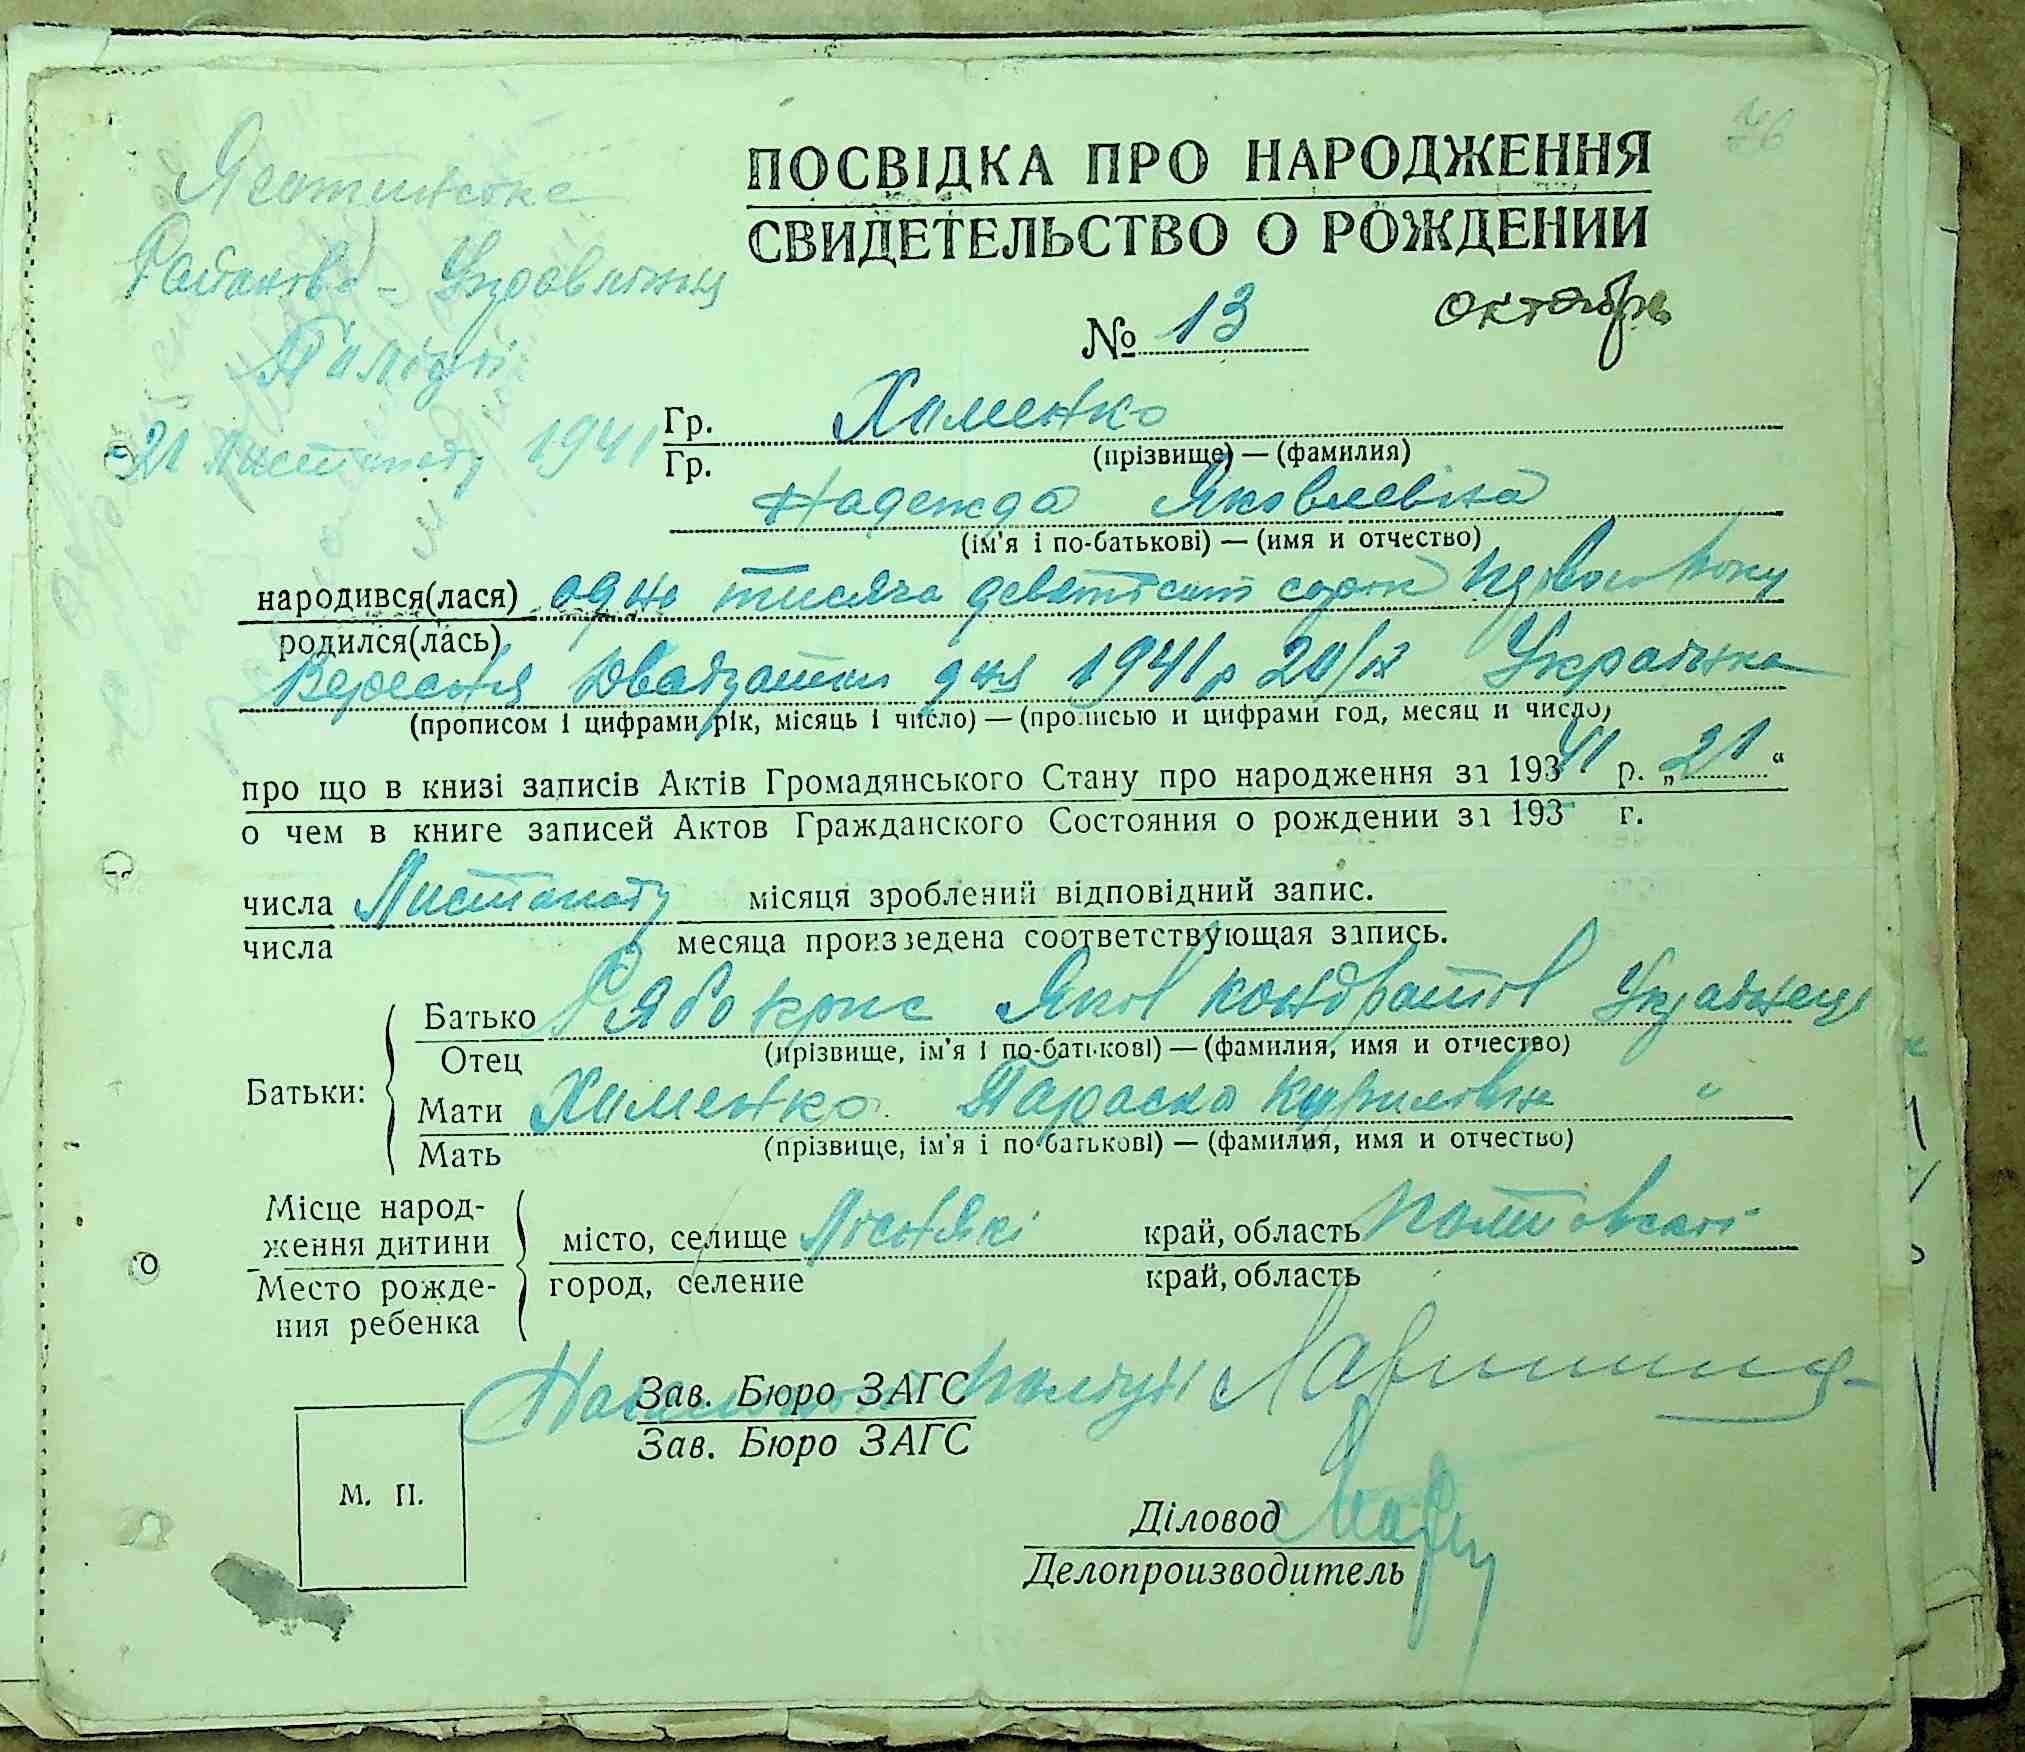 76
Яготинське
ПОСВІДКА ПРО НАРОДЖЕННЯ
СВИДЕТЕЛЬСТВО О РОЖДЕНИИ
№ 13
октябрь
21 листопаду 1941
Гр. Хоменко
Гр.
(прізвище) — (фамилия)
Надежда Яковлевіна
(ім'я і по-батькові) — (имя и отчество)
народився(лася) одна тисяча девятсит сорок первого року
родился(лась)
Вересня двадзатки дня 1941 р 20/IX Українка
(прописом і цифрами рік, місяць і число) — (прописью и цифрами год, месяц и число)
про що в книзі записів Актів Громадянського Стану про народження за 19341 р. „21“
о чем в книге записей Актов Гражданского Состояния о рождении за 193 г.
числа Листопаду місяця зроблений відповідний запис.
числа месяца произведена соответствующая запись.
Батько Рябокрис Яков Кондратов Українец
Отец (прізвище, ім'я і по-батькові) — (фамилия, имя и отчество)
Батьки:
Мати Хоменко Параска Куриловна "
Мать (прізвище, ім'я і по-батькові) — (фамилия, имя и отчество)
Місце народ-
ження дитини
місто, селище Лісняки край, область Полтовскої
Место рожде-
ния ребенка
город, селение край, область
Зав. Бюро ЗАГС
Зав. Бюро ЗАГС
М. П.
Діловод
Делопроизводитель